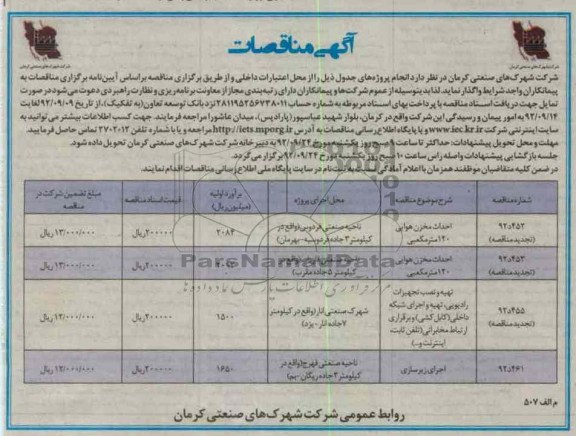 آگهی مناقصات
شرکت شهرک‌های صنعتی کرمان در نظر دارد انجام پروژه‌های جدول ذیل را از محل اعتبارات داخلی و از طریق برگزاری مناقصه براساس آیین‌نامه برگزاری مناقصات به
پیمانکاران واجد شرایط واگذار نماید. لذا بدینوسیله از عموم شرکت‌ها و پیمانکاران دارای رتبه‌بندی مجاز از معاونت برنامه‌ریزی و نظارت راهبردی دعوت می‌شود در صورت
تمایل جهت دریافت اسناد مناقصه با پرداخت بهای اسناد مربوطه به شماره حساب نزد بانک توسعه تعاون (به تفکیک)، از تاریخ ۹۲/۰۹/۰۹ لغایت
۹۲/۰۹/۱۴ به امور پیمان و رسیدگی این شرکت واقع در کرمان، بلوار شهید عباسپور (پارادیس)، میدان عاشورا مراجعه فرمایند. جهت کسب اطلاعات بیشتر می‌توانید به
سایت اینترنتی شرکت www.iec.kr.ir و یا پایگاه اطلاع‌رسانی مناقصات به آدرس http://iets.mporg.ir مراجعه و یا با شماره تلفن تماس حاصل فرمایید.
مهلت و محل تحویل پیشنهادات: حداکثر تا ساعت روز یکشنبه مورخ ۹۲/۰۹/۲۴ به دبیرخانه شرکت شهرک‌های صنعتی کرمان تحویل داده شود.
جلسه بازگشایی پیشنهادات واصله راس ساعت ۱۰ صبح روز مورخ ۹۲/۰۹/۲۴ برگزار می‌گردد.
در ضمن کلیه متقاضیان موظفند همزمان با اعلام آمادگی نسبت به ثبت‌نام در سایت پایگاه ملی اطلاع‌رسانی مناقصات اقدام نمایند.
شماره مناقصه شرح موضوع مناقصه محل اجرای پروژه برآورد اولیه (میلیون ریال) قیمت اسناد مناقصه مبلغ تضمین شرکت در مناقصه
۹۲ف۴۵۲ (تجدید مناقصه) احداث مخزن هوایی ۱۲۰ مترمکعبی ناحیه صنعتی فردوس (واقع در کیلومتر ۳ جاده فردوسیه-بهرمان) ۲۰۸۴ ۲۰۰۰۰۰ ریال ۱۳/۰۰۰/۰۰۰ ریال
۹۲ف۴۵۳ (تجدید مناقصه) احداث مخزن هوایی ۱۲۰ مترمکعبی کیلومتر ۵ جاده ۲۰۰۰۰۰ ریال ۱۳/۰۰۰/۰۰۰ ریال
۹۲ف۴۵۵ (تجدید مناقصه) تهیه و نصب تجهیزات رادیویی، تهیه و اجرای شبکه داخلی (کابل کشی) و برقراری ارتباط مخابراتی (تلفن ثابت، اینترنت و..) شهرک صنعتی انار (واقع در کیلومتر ۷ جاده انار-یزد) ۱۵۰۰ ۲۰۰۰۰۰ ریال ۱۲/۰۰۰/۰۰۰ ریال
۹۲ف۴۶۱ اجرای زیرسازی ناحیه صنعتی فهرج (واقع در کیلومتر ۳ جاده ریگان-بم) ۱۶۵۰ ۲۰۰۰۰۰ ریال ۱۲/۰۰۰/۰۰۰ ریال
ParsNamadData
م الف ۵۰۷
روابط عمومی شرکت شهرک‌های صنعتی کرمان